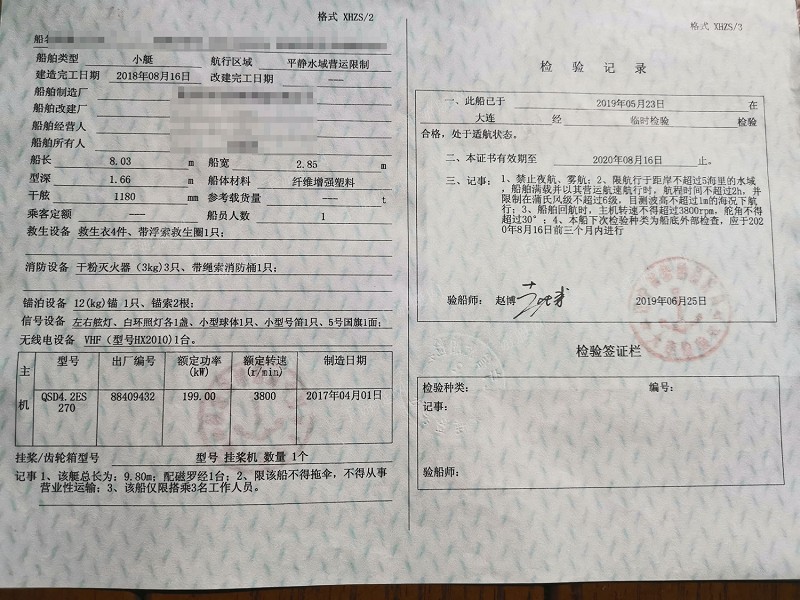 格式 XHZS/2
船舶类型 小艇 航行区域 平静水域营运限制
建造完工日期 2018年08月16日 改建完工日期 ——
船舶制造厂
船舶改建厂
船舶经营人
船舶所有人
船长 8.03 m 船宽 2.85 m
型深 1.66 m 船体材料 纤维增强塑料
干舷 1180 mm 参考载货量 —— t
乘客定额 —— 船员人数 1
救生设备 救生衣4件、带浮索救生圈1只;
消防设备 干粉灭火器(3kg)3只、带绳索消防桶1只;
锚泊设备 12(kg)锚 1只、锚索2根;
信号设备 左右舷灯、白环照灯各1盏、小型球体1只、小型号笛1只、5号国旗1面;
无线电设备 VHF(型号HX2010)1台。
主机
型号 出厂编号 额定功率(kW) 额定转速(r/min) 制造日期
QSD4.2ES 270 88409432 199.00 3800 2017年04月01日
挂桨/齿轮箱型号 型号 挂桨机 数量 1个
记事 1、该艇总长为:9.80m;配磁罗经1台;2、限该船不得拖伞,不得从事
营业性运输;3、该船仅限搭乘3名工作人员。
格式 XHZS/3
检验记录
一、此船已于 2019年05月23日 在
大连 经 临时检验 检验
合格,处于适航状态。
二、本证书有效期至 2020年08月16日 止。
三、记事:1、禁止夜航、雾航;2、限航行于距岸不超过5海里的水域
,船舶满载并以其营运航速航行时,航程时间不超过2h,并
限制在蒲氏风级不超过6级,目测波高不超过1m的海况下航
行;3、船舶回航时,主机转速不得超过3800rpm,舵角不得
超过30°;4、本船下次检验种类为船底外部检查,应于202
0年8月16日前三个月内进行
验船师: 赵博 2019年06月25日
检验签证栏
检验种类: 编号:
记事:
验船师: